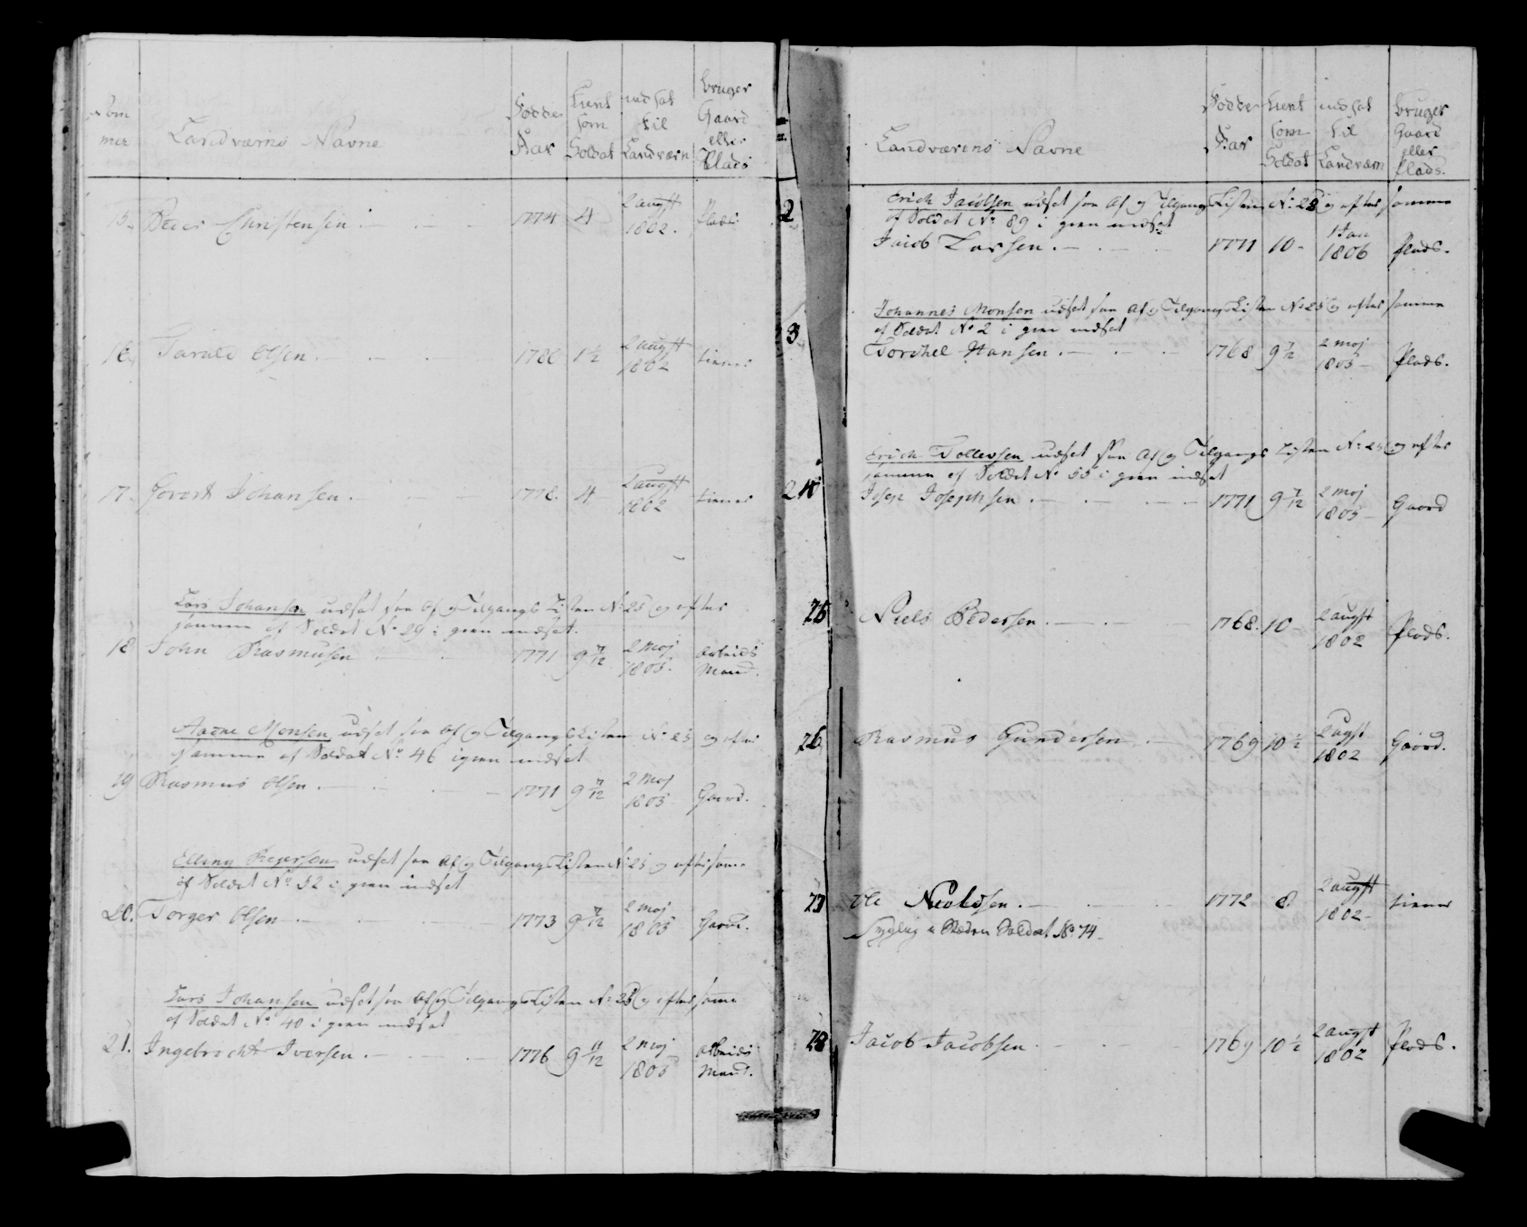 Num
mer
Landværns Navne
Fødde
Aar
tient
som
Soldat
indsat
til
Landværn
bruger
Gaard
eller
Plads
15. Peder Christensen 1774 4 2 augst 1802. Plads
16. Tarald Olsen 1780 1½ 2 augst 1802 tiener
17. Johansen 1778 4 2 augst 1802 tiener
Lars Johansen udsat see Af og Tilgangs Listen No 25 og efter
samme af Soldat No 29 igien indsat.
18 John Rasmusen 1771 9 7/12 2 Maj 1805. arbeids Mand.
Aadne Monsen udsat see Af og Tilgangs Listen No 25 og efter
samme af Soldat No 46 igien indsat
19 Rasmus Olsen 1771 9 7/12 2 Maj 1805 Gaard.
Elling udsat see Af og Tilgangs Listen No 25 og efter samme
af Soldat No 52 igien indsat
20. Torger Olsen 1773 9 7/12 2 Maj 1805 Gaard.
Lars Johansen udsat see Af og Tilgangs Listen No 25 og efter samme
af Soldat No 40 igien indsat
21. Ingebrecht Iversen 1776 9 2 Maj 1805 arbeids Mand.
Landværens Navne
Fødde
Aar
tient
som
Soldat
indsat
til
Landværn
bruger
Gaard
eller
Plads.
2 Erich Jacobsen udsat see Af og Tilgangs Listen No 28 og efter samme
af Soldat No 89 igien indsat
Jacob Larsen 1771 10 1 Jan 1806 Plads.
3 Johannes Monsen udsat see Af og Tilgangs Listen No 25 og efter samme
af Soldat No 2 igien indsat
Torchel Hansen 1768 9 7/12 2 Maj 1805 Plads.
Erich Tollevsen udsat see Af og Tilgangs Listen No 25 og efter
samme af Soldat No 55 igien indsat
24 Josep Josephsen 1771 9 7/12 2 Maj 1805 Gaard
25 Niels Pedersen 1768. 10 2 augst 1802 Plads.
26 Rasmus Gundersen 1769 10½ 2 augst 1802 Gaard.
27 Ole Nielsen 1772 8 2 augst 1802 tiener
Soldat No 74
28 Jacob Jacobsen 1769 10½ 2 augst 1802 Plads.